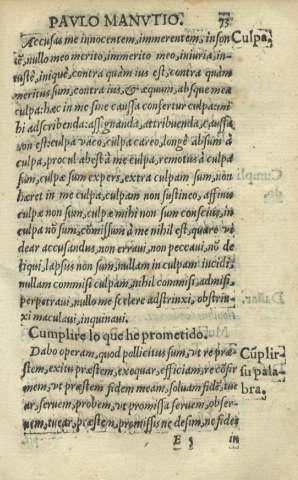 PAVLO MANVTIO. 73
Accusas me innocentem, immerentem, inson Culpa.
tē, nullo meo merito, immerito meo, iniuria, in-
iustè, iniquè, contra quàm ius est, contra quàm
meritus sum, contra ius, & æquum, absque mea
culpa: hæc in me sine caussa confertur culpa: mi
hi adscribenda: assignanda, attribuenda, caussa
non est: culpa vaco, culpa careo, longè absum à
culpa, procul abest à me culpa, remotus à culpa
sum, culpæ sum expers, extra culpam sum, non
hæret in me culpa, culpam non sustineo, affinis
culpæ non sum, culpæ mihi non sum conscius, in
culpa nō sum, cōmissum à me nihil est, quare vi
dear accusandus, non erraui, non peccaui, nō de
liqui, lapsus non sum, nullam in culpam incidi,
nullam commisi culpam, nihil commisi, admisi,
perpetraui, nullo me scelere adstrinxi, obstrin-
xi maculaui, inquinaui.
Cumplire lo que he prometido.
Dabo operam, quod pollicitus sum, vt re præ Cūplir
stem, exitu præstem, exequar, efficiam, re cōfir su pala
mem, vt præstem fidem meam, soluam fidē, tue bra.
ar, seruem, probem, vt promissa seruem, obser-
uem, tuear, præstem, promissis ne desim, ne fidei
E